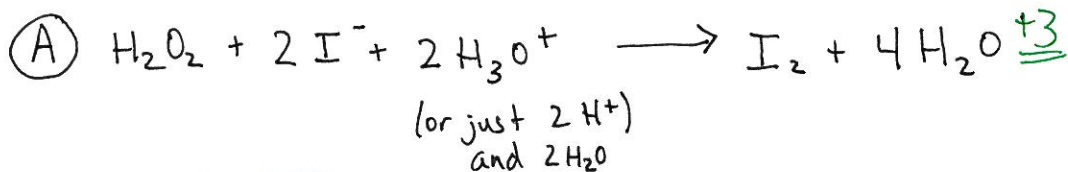 A H₂O₂ + 2 I⁻ + 2 H₃O⁺ ⟶ I₂ + 4 H₂O +3
(or just 2 H⁺)
and 2 H₂O